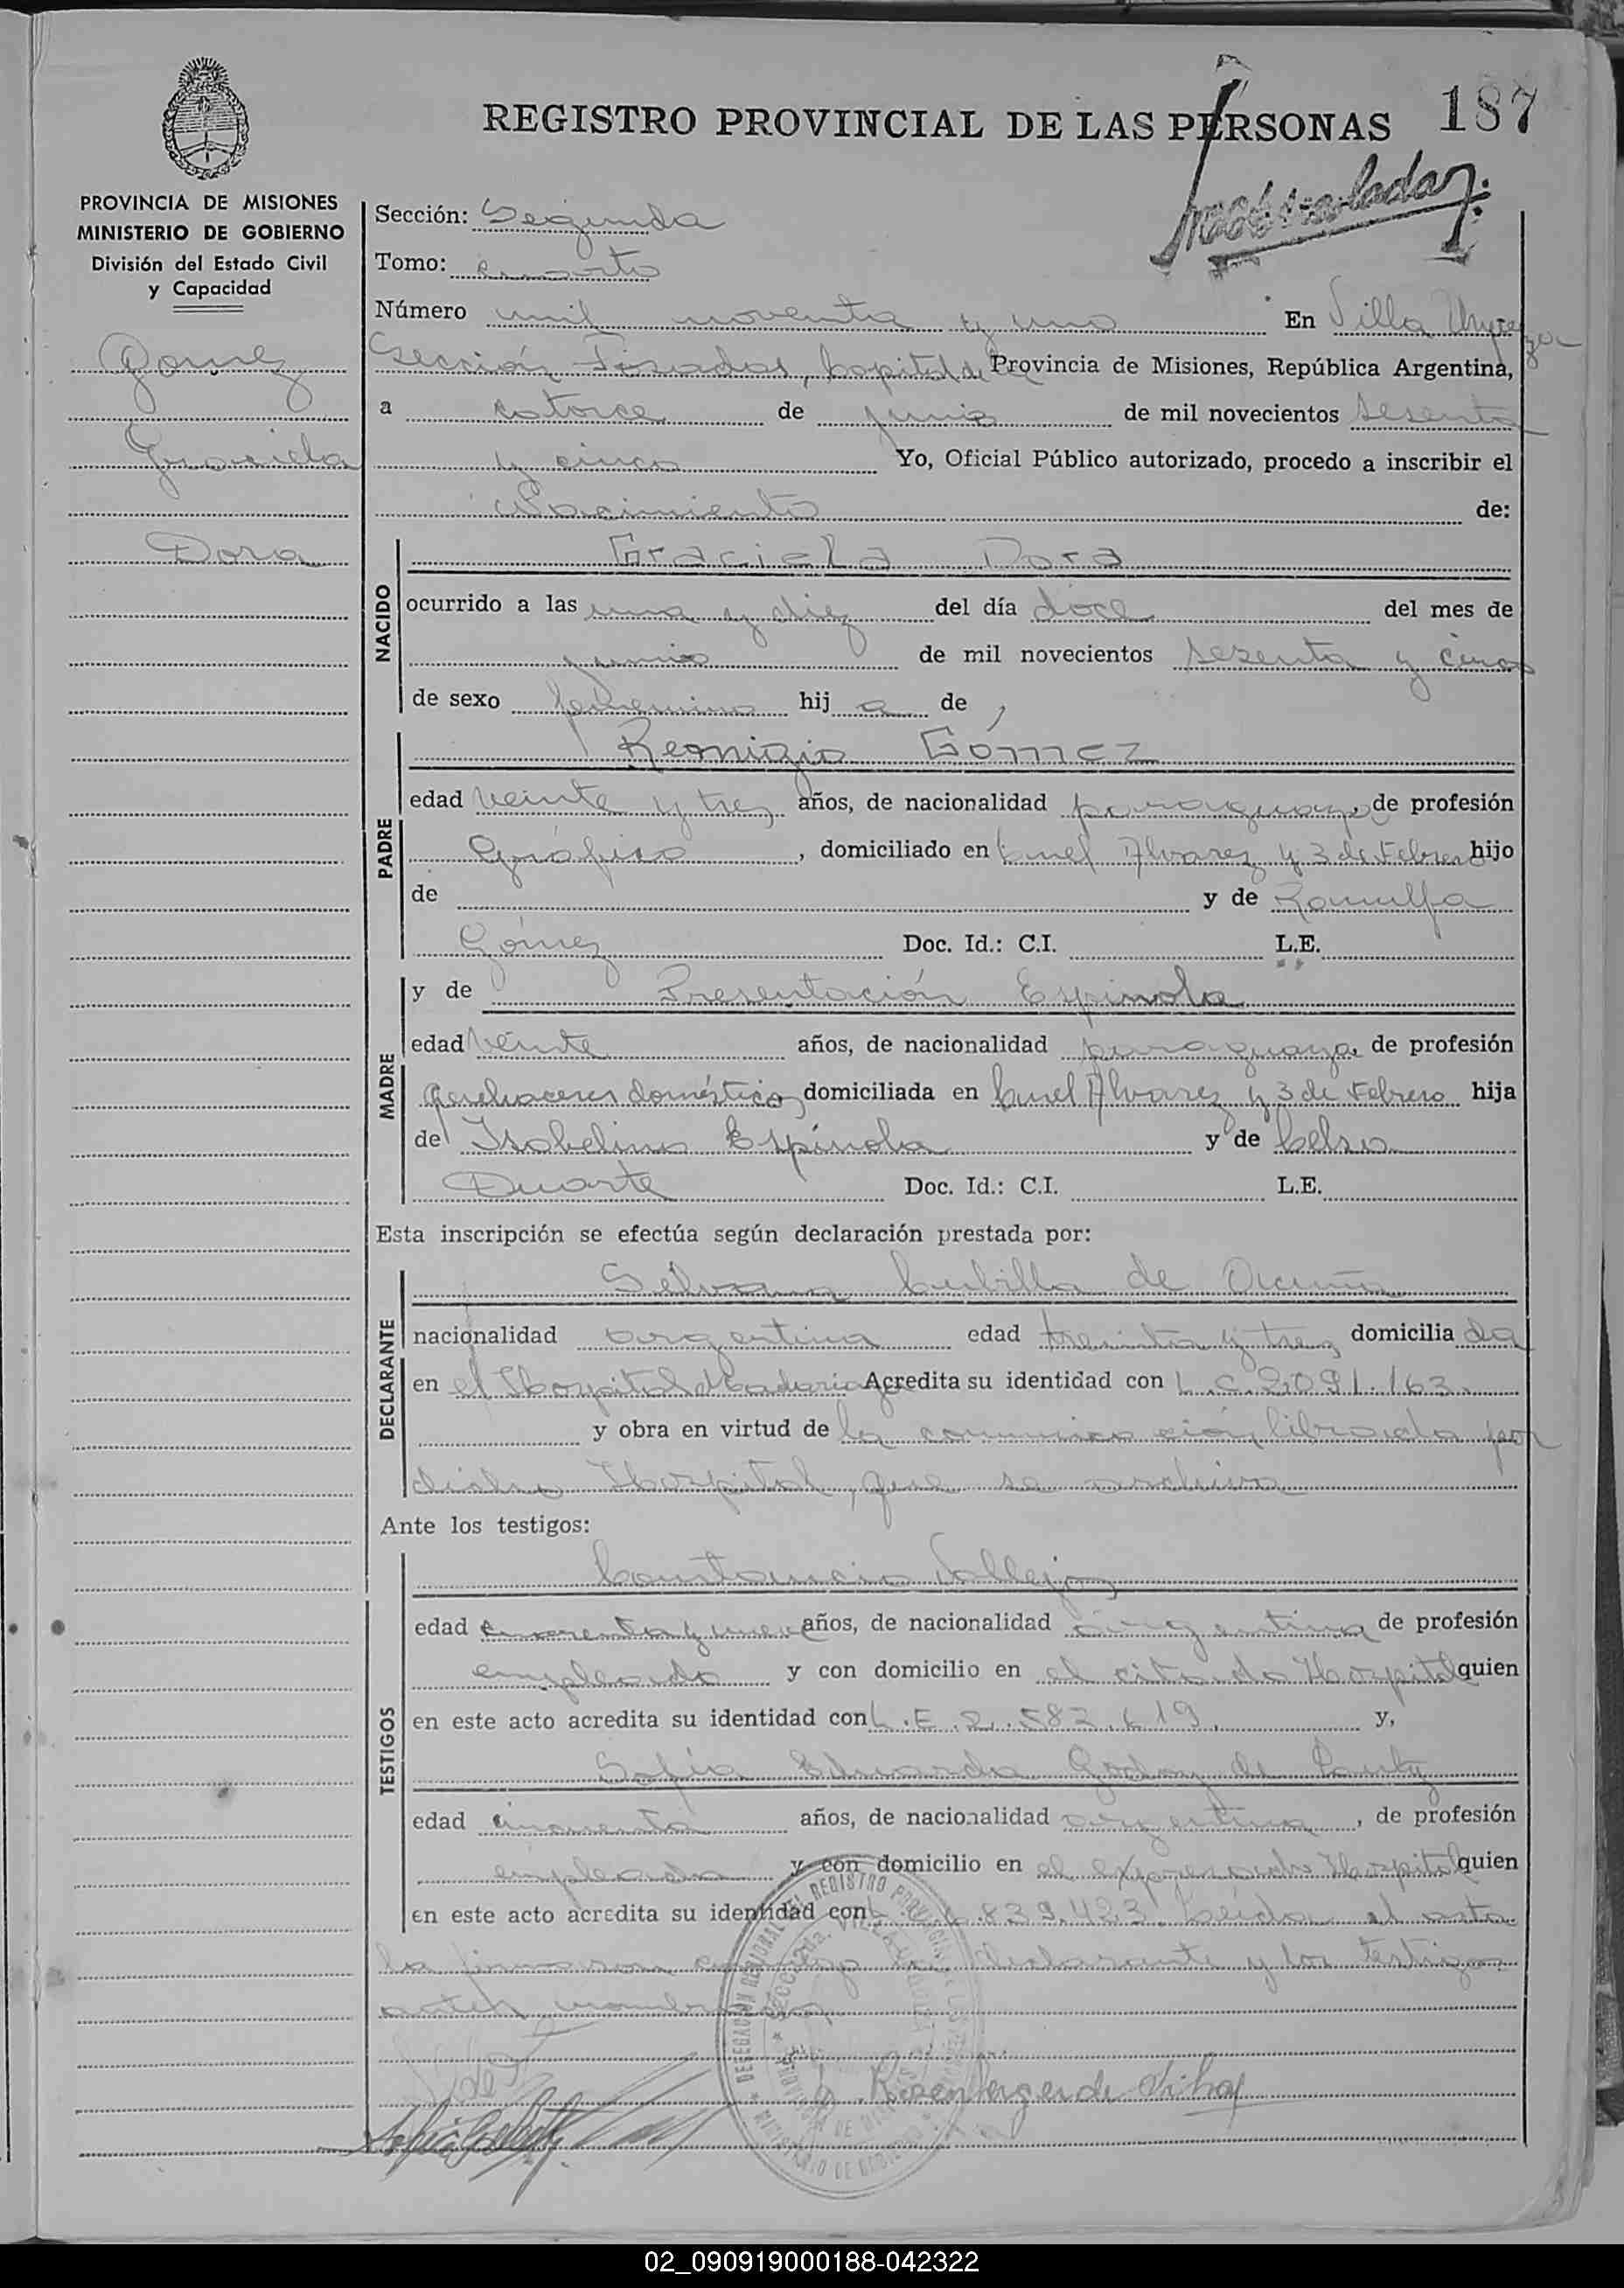 REGISTRO PROVINCIAL DE LAS PERSONAS 187
PROVINCIA DE MISIONES
MINISTERIO DE GOBIERNO
División del Estado Civil
y Capacidad
Gomez
Graciela
Dora
Sección: Segunda
Tomo: cuarto
Número mil noventa y uno En Villa Urquiza
Sección Posadas, Capital de Provincia de Misiones, República Argentina,
a catorce de junio de mil novecientos sesenta
y cinco Yo, Oficial Público autorizado, procedo a inscribir el
Nacimiento de:
NACIDO
Graciela Dora
ocurrido a las una y diez del día doce del mes de
junio de mil novecientos sesenta y cinco
de sexo femenino hij a de
PADRE
Remigio Gómez
edad veinte y tres años, de nacionalidad paraguayo, de profesión
Gráfico, domiciliado en Cnel Alvarez y 3 de Febrero hijo
de y de Ranulfa
Gómez Doc. Id.: C.I. L.E.
MADRE
y de Presentación Espinola
edad veinte años, de nacionalidad paraguaya, de profesión
quehaceres domésticos, domiciliada en Cnel Alvarez y 3 de Febrero hija
de Isabelino Espínola y de Celsa
Duarte Doc. Id.: C.I. L.E.
Esta inscripción se efectúa según declaración prestada por:
DECLARANTE
Cubilla de Acuña
nacionalidad argentina edad treinta y tres domicilia da
en el Hospital Madariaga Acredita su identidad con L.C. 2.091.163.
y obra en virtud de la comunicación librada por
dicho Hospital, que se archiva
Ante los testigos:
TESTIGOS
Constancio Vallejos
edad cuarenta y nueve años, de nacionalidad argentina de profesión
empleado y con domicilio en el citado Hospital quien
en este acto acredita su identidad con L.E. 2.583.619. y,
Sofia Eduarda Godoy de
edad cincuenta años, de nacionalidad argentina, de profesión
empleada y con domicilio en el expresado Hospital quien
en este acto acredita su identidad con 839.423. Leída el acta
la firmaron conmigo la declarante y los testigos
antes nombrados.
02_090919000188-042322